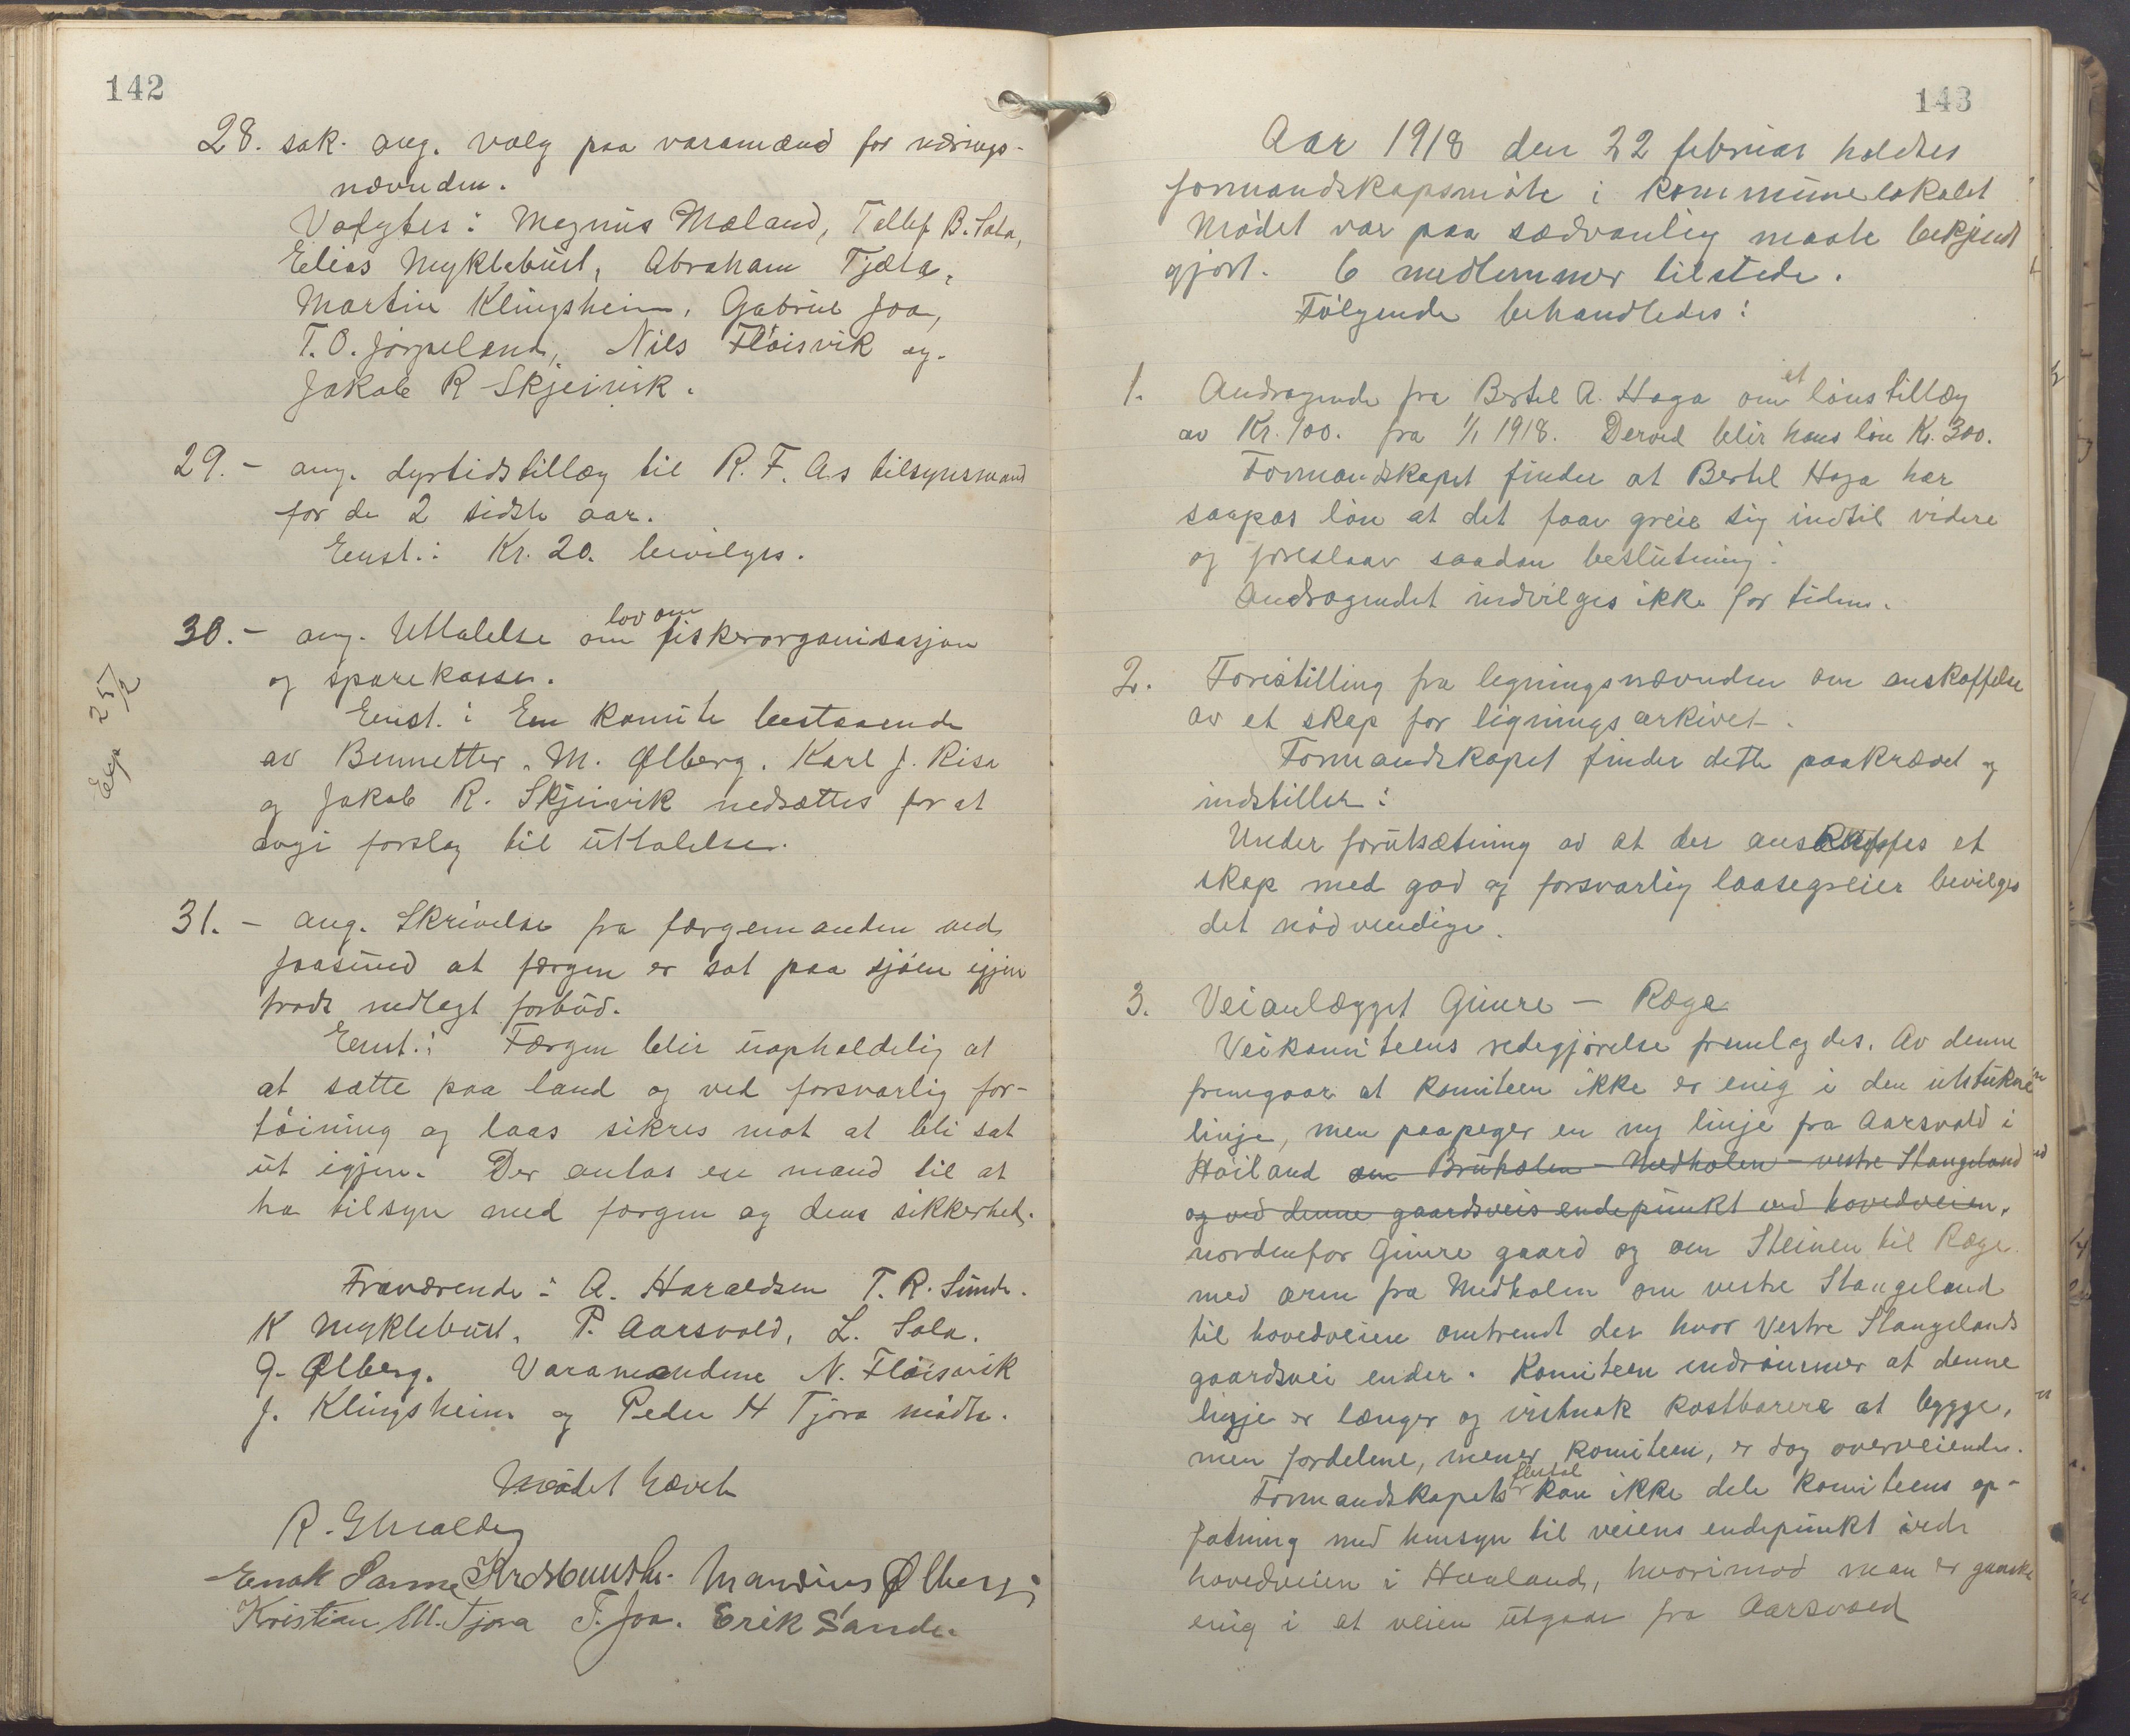 142
28. sak. ang. valg paa varamænd for nærings-
nævnden.
Valgtes: Magnus Mæland, Tollef B. Sola,
Elias Myklebust, Abraham Tjæla,
Martin Klingsheim, Gabriel Joa,
T. O. Jørpeland, Nils Fløisvik og
Jakob R Skjeivik.
29. - ang. dyrtidstillæg til R. F. Aas tilsynsmand
for de 2 sidste aar.
Enst.: Kr. 20. bevilges.
30. - ang. Uttalelse om lov om fiskerorganisasjon
og sparekasse.
Enst.: En komite bestaaende
av Bennetter, M. Ølberg, Karl J. Risa
og Jakob R. Skjeivik nedsættes for at
avgi forslag til uttalelse.
Eksp 25/2
31. - ang. Skrivelse fra færgemanden ved
Joasund at færgen er sat paa sjøen igjen
trods nedlagt forbud.
Enst.: Færgen blir uopholdelig at
at sætte paa land og ved forsvarlig for-
tøining og laas sikres mot at bli sat
ut igjen. Der antas en mand til at
ha tilsyn med færgen og dens sikkerhet.
Fraværende: A. Haraldsen T. R. Sunde.
K Myklebust, P. Aarsvold, L. Sola.
G. Ølberg. Varamændene N. Fløisvik
J. Klingsheim og Peder H Tjora mødte.
Mødet hævet
Enok Sømme Mandius Ølberg
Kristian M. Tjora T. Joa. Erik Sande.
143
Aar 1918 den 22 februar holdtes
formandskapsmøte i kommunelokalet
Mødet var paa sædvanlig maate bekjendt
gjort. 6 medlemmer tilstede.
Følgende behandledes:
1. Andragende fra Bertel A. Haga om et lønstillæg
av Kr. 100. fra 1/1 1918. Derved blir hans løn Kr. 300.
Formandskapet finder at Bertel Haga har
saapas løn at det faar greie sig indtil videre
og foreslaar saadan beslutning:
Andragendet indvilges ikke for tiden.
2. Forestilling fra ligningsnævnden om anskaffelse
av et skap for ligningsarkivet.
Formandskapet finder dette paakrævet og
indstiller:
Under forutsætning av at der anskaffes et
skap med god og forsvarlig laasegreier bevilges
det nødvendige.
3. Veianlægget Gimre - Ræge
Veikomiteens redegjørelse fremlagdes. Av denne
fremgaar at komiteen ikke er enig i den utstukne
linje, men paapeger en ny linje fra Aarsvold i
Høiland om Bruholen - Medholen - vestre Stangeland
og ved denne gaardsveis endepunkt ved hovedveien,
nordenfor Gimre gaard og om Steinen til Ræge
med arm fra Medholen om vestre Stangeland
til hovedveien omtrendt der hvor Vestre Stangelands
gaardsvei ender. Komiteen indrømmer at denne
linje er længer og vistnok kostbarere at bygge,
men fordelene, mener komiteen, er dog overveiende.
Formandskapets flertal kan ikke dele komiteens op-
fatning med hensyn til veiens endepunkt ved
hovedveien i Høiland, hvorimod man er ganske
enig i at veien utgaar fra Aarsvold